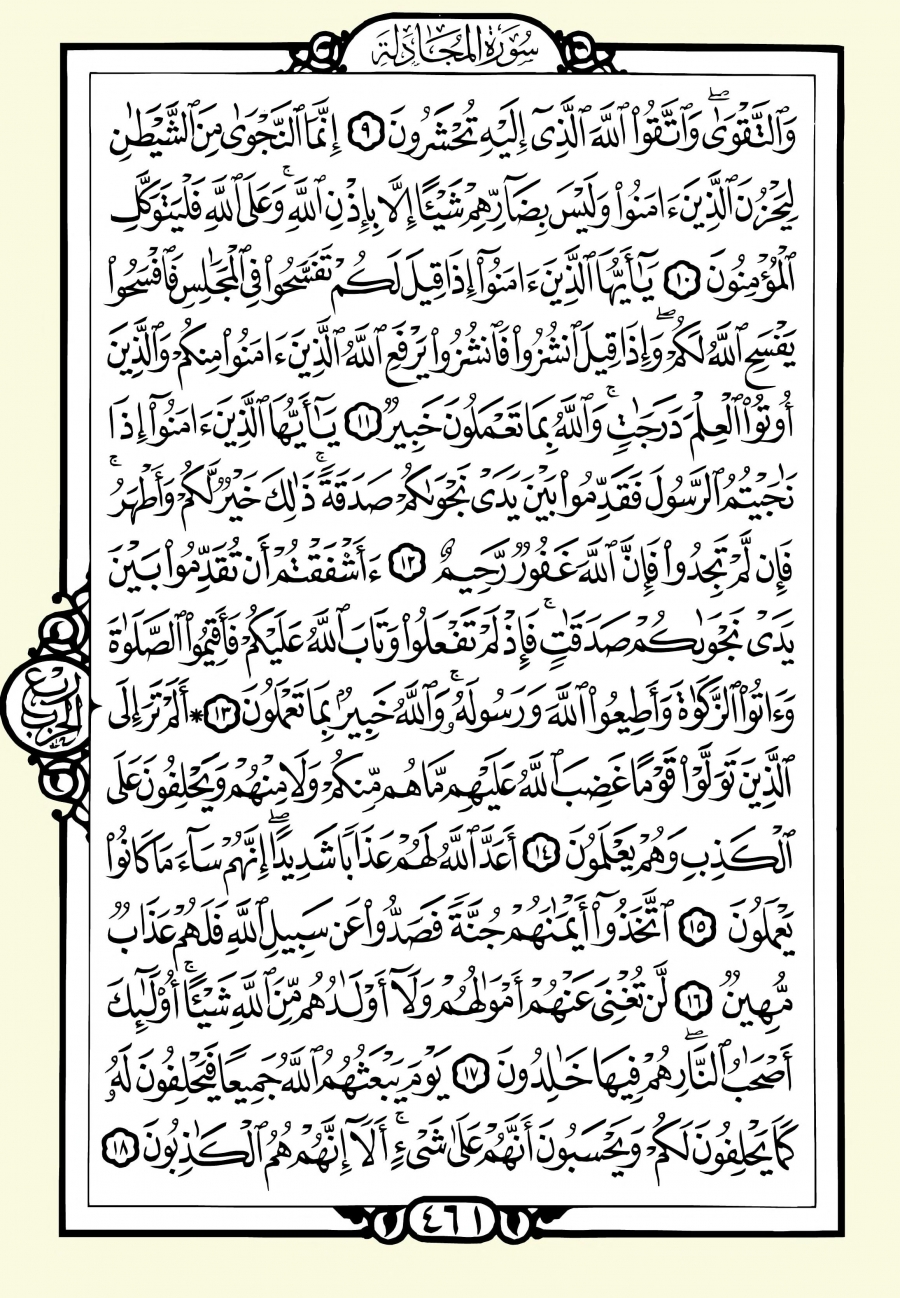 سُورَةُ المُجَادلَة
وَٱلتَّقۡوَىٰۖ وَٱتَّقُواْ ٱللَّهَ ٱلَّذِيٓ إِلَيۡهِ تُحۡشَرُونَ ٩ إِنَّمَا ٱلنَّجۡوَىٰ مِنَ ٱلشَّيۡطَٰنِ
لِيَحۡزُنَ ٱلَّذِينَ ءَامَنُواْ وَلَيۡسَ بِضَآرِّهِمۡ شَيۡـًٔا إِلَّا بِإِذۡنِ ٱللَّهِۚ وَعَلَى ٱللَّهِ فَلۡيَتَوَكَّلِ
ٱلۡمُؤۡمِنُونَ ١٠ يَٰٓأَيُّهَا ٱلَّذِينَ ءَامَنُوٓاْ إِذَا قِيلَ لَكُمۡ تَفَسَّحُواْ فِي ٱلۡمَجَٰلِسِ فَٱفۡسَحُواْ
يَفۡسَحِ ٱللَّهُ لَكُمۡۖ وَإِذَا قِيلَ ٱنشُزُواْ فَٱنشُزُواْ يَرۡفَعِ ٱللَّهُ ٱلَّذِينَ ءَامَنُواْ مِنكُمۡ وَٱلَّذِينَ
أُوتُواْ ٱلۡعِلۡمَ دَرَجَٰتٖۚ وَٱللَّهُ بِمَا تَعۡمَلُونَ خَبِيرٞ ١١ يَٰٓأَيُّهَا ٱلَّذِينَ ءَامَنُوٓاْ إِذَا
نَٰجَيۡتُمُ ٱلرَّسُولَ فَقَدِّمُواْ بَيۡنَ يَدَيۡ نَجۡوَىٰكُمۡ صَدَقَةٗۚ ذَٰلِكَ خَيۡرٞ لَّكُمۡ وَأَطۡهَرُۚ
فَإِن لَّمۡ تَجِدُواْ فَإِنَّ ٱللَّهَ غَفُورٞ رَّحِيمٌ ١٢ ءَأَشۡفَقۡتُمۡ أَن تُقَدِّمُواْ بَيۡنَ
يَدَيۡ نَجۡوَىٰكُمۡ صَدَقَٰتٖۚ فَإِذۡ لَمۡ تَفۡعَلُواْ وَتَابَ ٱللَّهُ عَلَيۡكُمۡ فَأَقِيمُواْ ٱلصَّلَوٰةَ
وَءَاتُواْ ٱلزَّكَوٰةَ وَأَطِيعُواْ ٱللَّهَ وَرَسُولَهُۥۚ وَٱللَّهُ خَبِيرُۢ بِمَا تَعۡمَلُونَ ١٣ * أَلَمۡ تَرَ إِلَى
ٱلَّذِينَ تَوَلَّوۡاْ قَوۡمًا غَضِبَ ٱللَّهُ عَلَيۡهِم مَّا هُم مِّنكُمۡ وَلَا مِنۡهُمۡ وَيَحۡلِفُونَ عَلَى
ٱلۡكَذِبِ وَهُمۡ يَعۡلَمُونَ ١٤ أَعَدَّ ٱللَّهُ لَهُمۡ عَذَابٗا شَدِيدًاۖ إِنَّهُمۡ سَآءَ مَا كَانُواْ
يَعۡمَلُونَ ١٥ ٱتَّخَذُوٓاْ أَيۡمَٰنَهُمۡ جُنَّةٗ فَصَدُّواْ عَن سَبِيلِ ٱللَّهِ فَلَهُمۡ عَذَابٞ
مُّهِينٞ ١٦ لَّن تُغۡنِيَ عَنۡهُمۡ أَمۡوَٰلُهُمۡ وَلَآ أَوۡلَٰدُهُم مِّنَ ٱللَّهِ شَيۡـًٔاۚ أُوْلَٰٓئِكَ
أَصۡحَٰبُ ٱلنَّارِۖ هُمۡ فِيهَا خَٰلِدُونَ ١٧ يَوۡمَ يَبۡعَثُهُمُ ٱللَّهُ جَمِيعٗا فَيَحۡلِفُونَ لَهُۥ
كَمَا يَحۡلِفُونَ لَكُمۡ وَيَحۡسَبُونَ أَنَّهُمۡ عَلَىٰ شَيۡءٍۚ أَلَآ إِنَّهُمۡ هُمُ ٱلۡكَٰذِبُونَ ١٨
ربع
الحزب
٤٦١